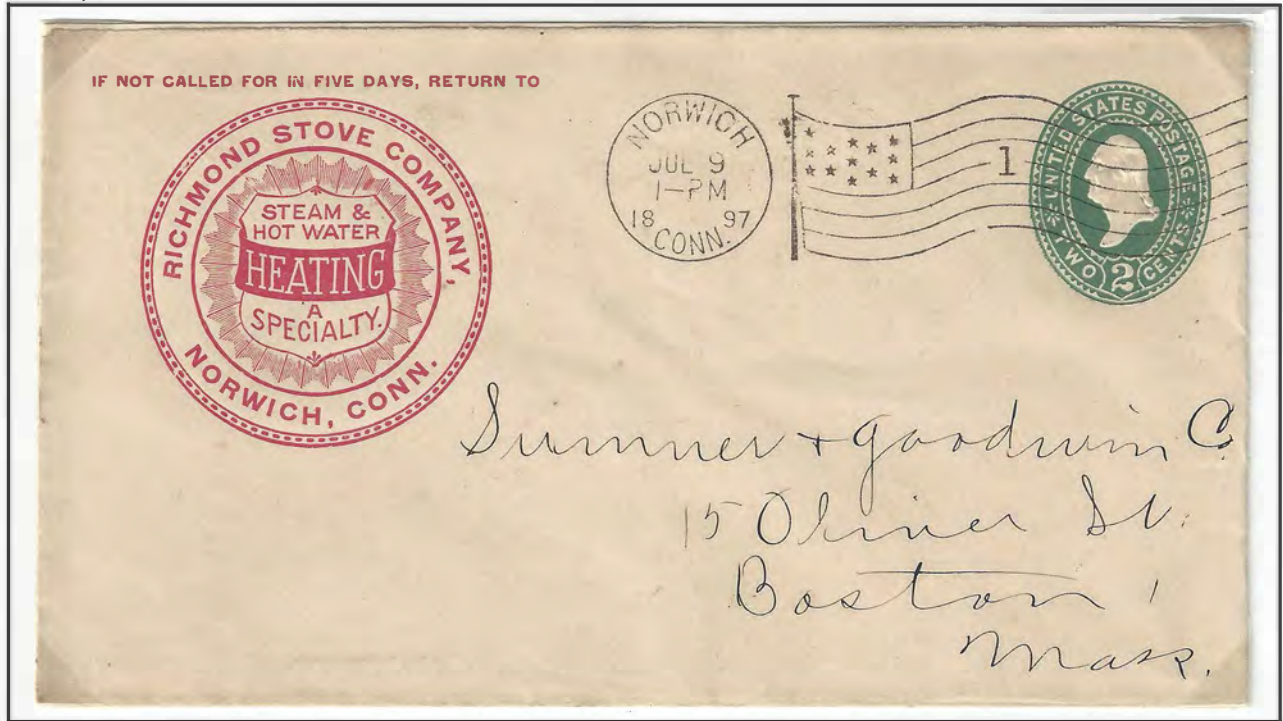 IF NOT CALLED FOR IN FIVE DAYS, RETURN TO
RICHMOND STOVE COMPANY,
STEAM &
HOT WATER
HEATING
A
SPECIALTY.
NORWICH, CONN.
NORWICH
JUL 9
1-PM
18 97
CONN.
1
UNITED STATES POSTAGE
TWO 2 CENTS
Sumner + Goodwin Co
15 Oliver St.
Boston
Mass.